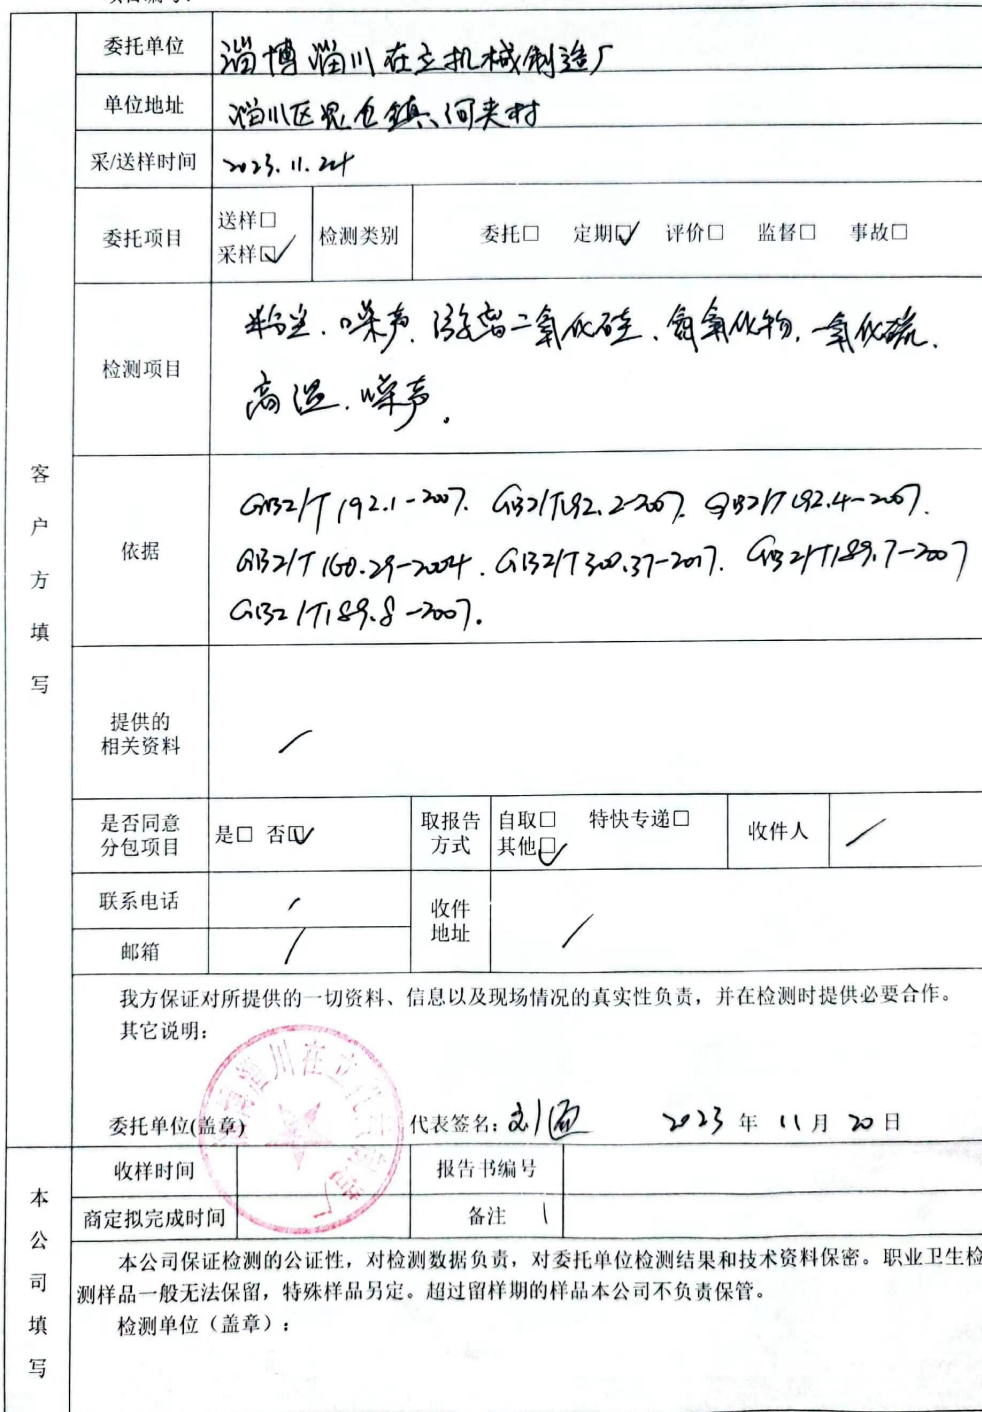 委托单位 淄博淄川在立机械制造厂
单位地址 淄川区昆仑镇、河夹村
采/送样时间 2023.11.24
委托项目 送样□ 采样☑ 检测类别 委托□ 定期☑ 评价□ 监督□ 事故□
检测项目
粉尘、噪声、游离二氧化硅、氮氧化物、一氧化硫、
高温、噪声。
客户方填写
依据
GBZ/T192.1-2007、GBZ/T192.2-2007、GBZ/T192.4-2007、
GBZ/T160.29-2004、GBZ/T300.37-2017、GBZ/T189.7-2007
GBZ/T189.8-2007。
提供的
相关资料 /
是否同意
分包项目 是□ 否☑ 取报告
方式 自取□ 特快专递□
其他☑ 收件人 /
联系电话 /
收件
地址 /
邮箱 /
我方保证对所提供的一切资料、信息以及现场情况的真实性负责，并在检测时提供必要合作。
其它说明：
淄川在立机
委托单位(盖章) 代表签名: 2023 年 11 月 20 日
本公司填写
收样时间 报告书编号
商定拟完成时间 备注
本公司保证检测的公证性，对检测数据负责，对委托单位检测结果和技术资料保密。职业卫生检
测样品一般无法保留，特殊样品另定。超过留样期的样品本公司不负责保管。
检测单位（盖章）：